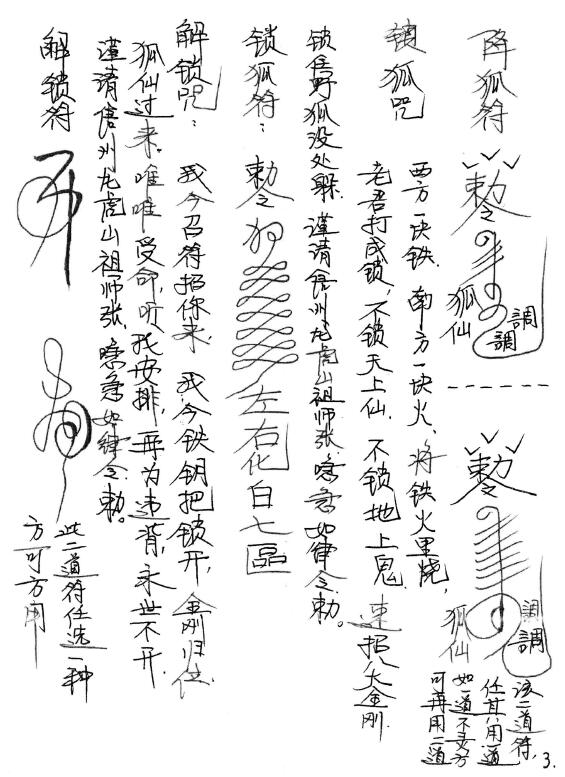 降狐符
敕令
狐仙
調
調
敕令
狐仙
調
調
该二道符，
任其用一道
如一道不灵方
可再用二道
锁狐咒
西方一块铁，南方一块火，将铁火里烧，
老君打成锁，不锁天上仙，不锁地上鬼，速招八大金刚，
锁住野狐没处躲，谨请信州龙虎山祖师张，噤急如律令勅。
锁狐符：
勅令
左右化白七區
解锁咒：我今召符招你来，我今铁钥把锁开，金刚归位，
狐仙过来，唯唯受命，听我安排，再为违背，永世不开，
谨请信州龙虎山祖师张，噤急如律令勅。
解锁符
此二道符任选一种
方可方用
3.